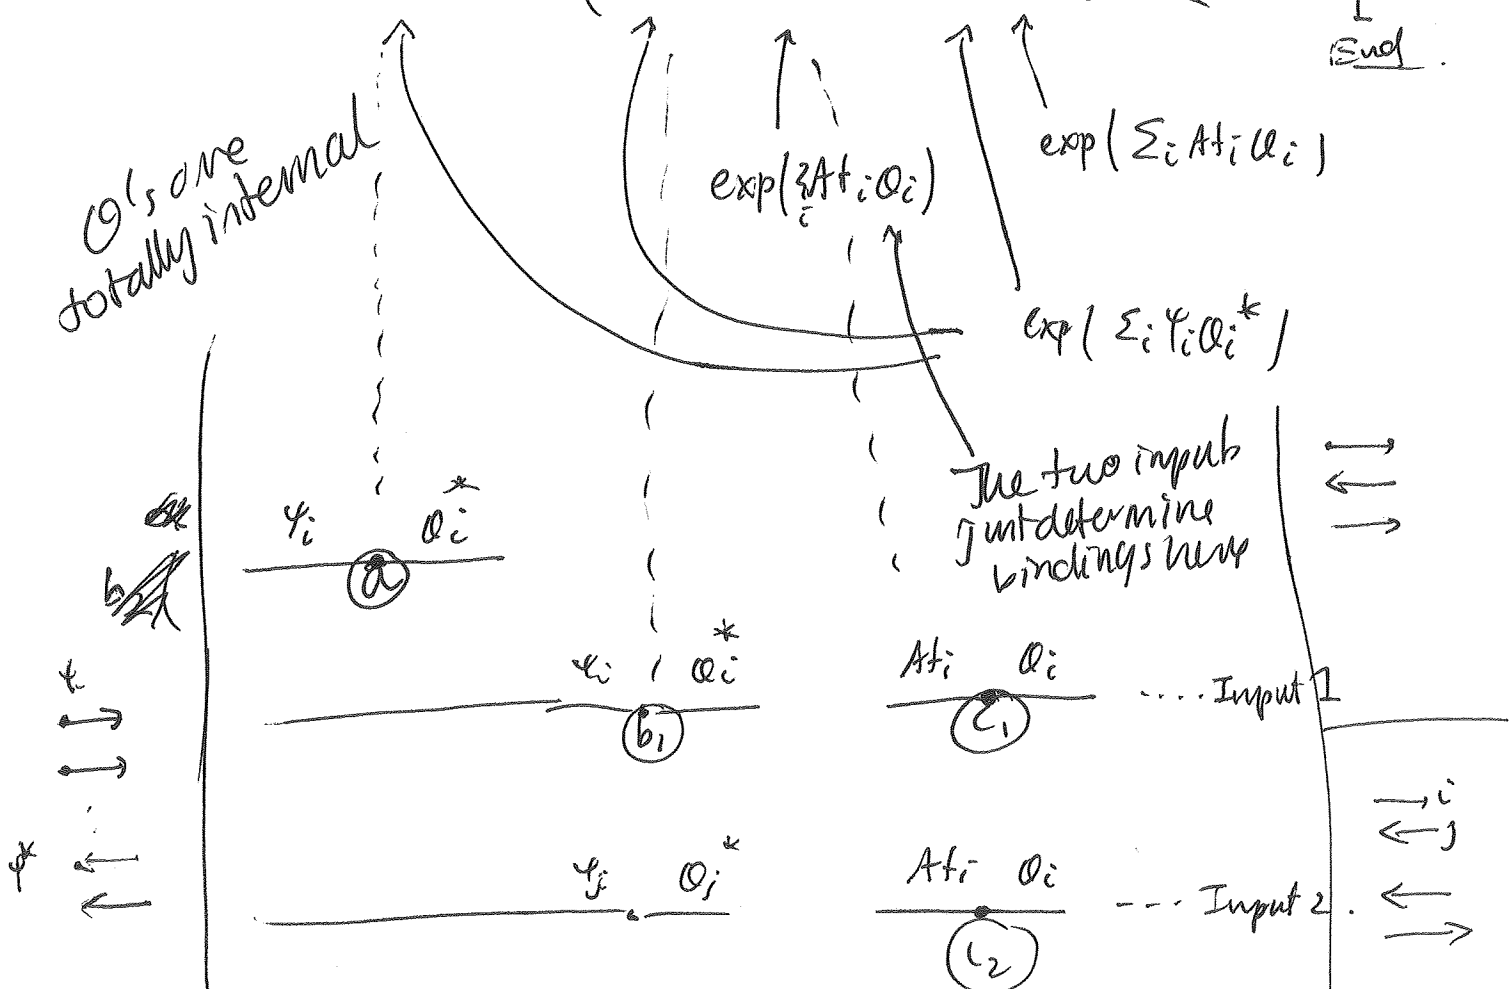 End.
O's are
totally internal
exp( Σ_i At_i O_i )
exp( Σ_i At_i O_i )
exp( Σ_i ψ_i O_i* )
The two inputs
just determine
bindings here
ψ_i O_i*
a
b
ψ_i O_i* At_i O_i .... Input 1
ψ_i
b_1 c_1
i
j
ψ*
ψ_j O_j* At_i O_i --- Input 2.
c_2